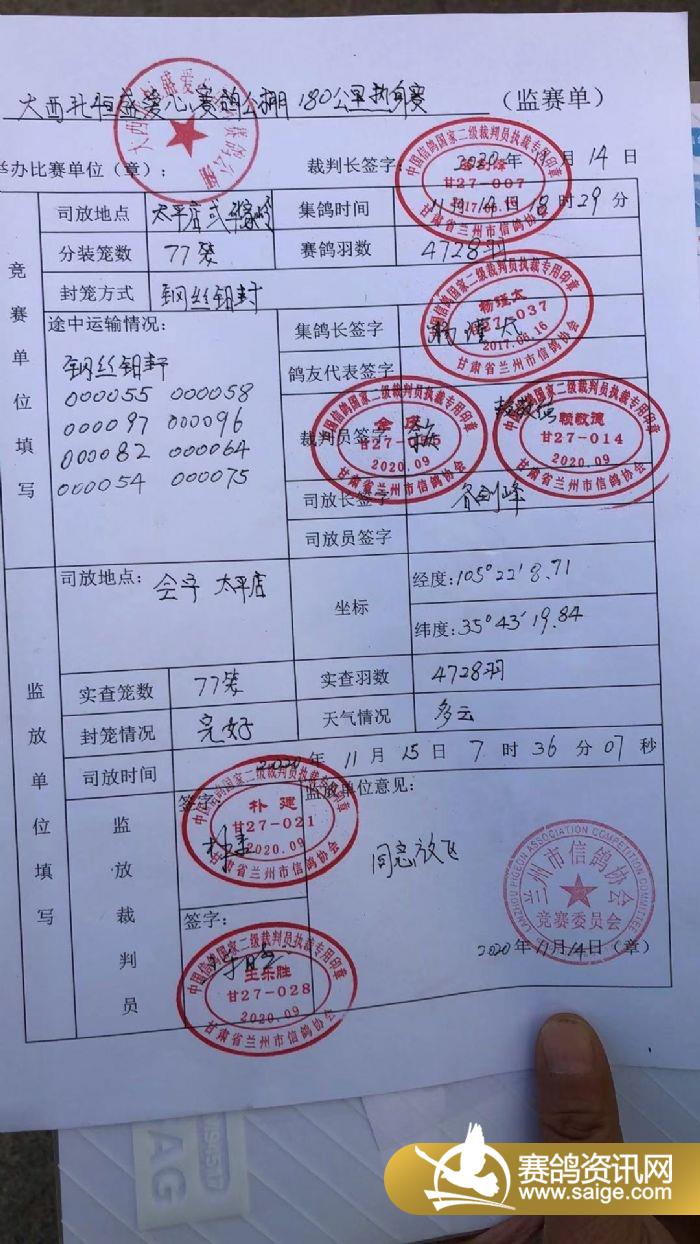 大西北恒盛爱心赛鸽公棚180公里热身赛（监赛单）
举办比赛单位（章）： 裁判长签字： 2020年11月14日
竞赛单位填写
司放地点 太平店 集鸽时间 11月14日18时29分
分装笼数 77笼 赛鸽羽数 4728羽
封笼方式 钢丝钳封
途中运输情况： 集鸽长签字 杨瑾太
钢丝钳封 鸽友代表签字
000055 000058
000097 000096 裁判员签字 赖敬德
000082 000064
000054 000075 司放长签字
司放员签字
监放单位填写
司放地点： 会宁 太平店 坐标 经度：105°22'8.71
纬度：35°43'19.84
实查笼数 77笼 实查羽数 4728羽
封笼情况 完好 天气情况 多云
司放时间 2020年11月15日7时36分07秒
监放裁判员 签字： 监放单位意见：
同意放飞
签字：
2020年11月14日（章）
大西北恒盛爱心赛鸽公棚
中国信鸽国家二级裁判员执裁专用印章
甘27-007
2017.06.16
甘肃省兰州市信鸽协会
中国信鸽国家二级裁判员执裁专用印章
杨瑾太
甘27-037
2017.06.16
甘肃省兰州市信鸽协会
中国信鸽国家二级裁判员执裁专用印章
2020.09
甘肃省兰州市信鸽协会
中国信鸽国家二级裁判员执裁专用印章
赖敬德
甘27-014
2020.09
甘肃省兰州市信鸽协会
中国信鸽国家二级裁判员执裁专用印章
朴建
甘27-021
2020.09
甘肃省兰州市信鸽协会
中国信鸽国家二级裁判员执裁专用印章
王乐胜
甘27-028
2020.09
甘肃省兰州市信鸽协会
LANZHOU PIGEON ASSOCIATION COMPETITION COMMITTEE
兰州市信鸽协会
竞赛委员会
赛鸽资讯网
www.saige.com